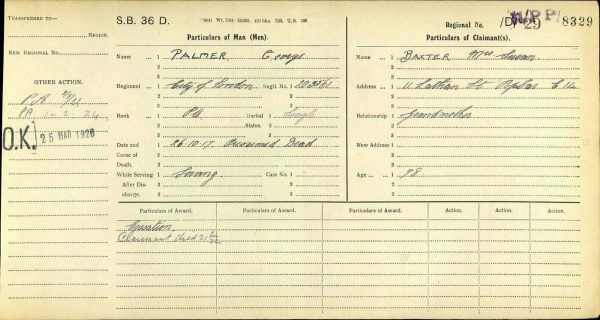 TRANSFERRED TO—
REGION.
NEW REGIONAL NO.
OTHER ACTION.
PA 1-2-24
O.K.
25 MAR 1926
S.B. 36 D.
Particulars of Man (Men).
Name 1 PALMER George
2
3
Regiment 1 City of London Regtl. No. 1
2
3
Rank 1 Pte Marital Status. 1 Single
2
3
Date and Cause of Death. 1 26.10.17. Presumed Dead
2
3
While Serving 1 Serving Case No. 1
After Discharge. 2
3
Regional No. 8329
W/PP/
/D/ 29
Particulars of Claimant(s).
Name 1 BAXTER Mrs Susan
2
3
Address 1 11 St Poplar E.14.
2
3
Relationship 1 Grandmother
2
3
New Address 1
2
3
Age 1 78
2
3
Particulars of Award. Particulars of Award. Particulars of Award. Action. Action. Action.
Claimant died